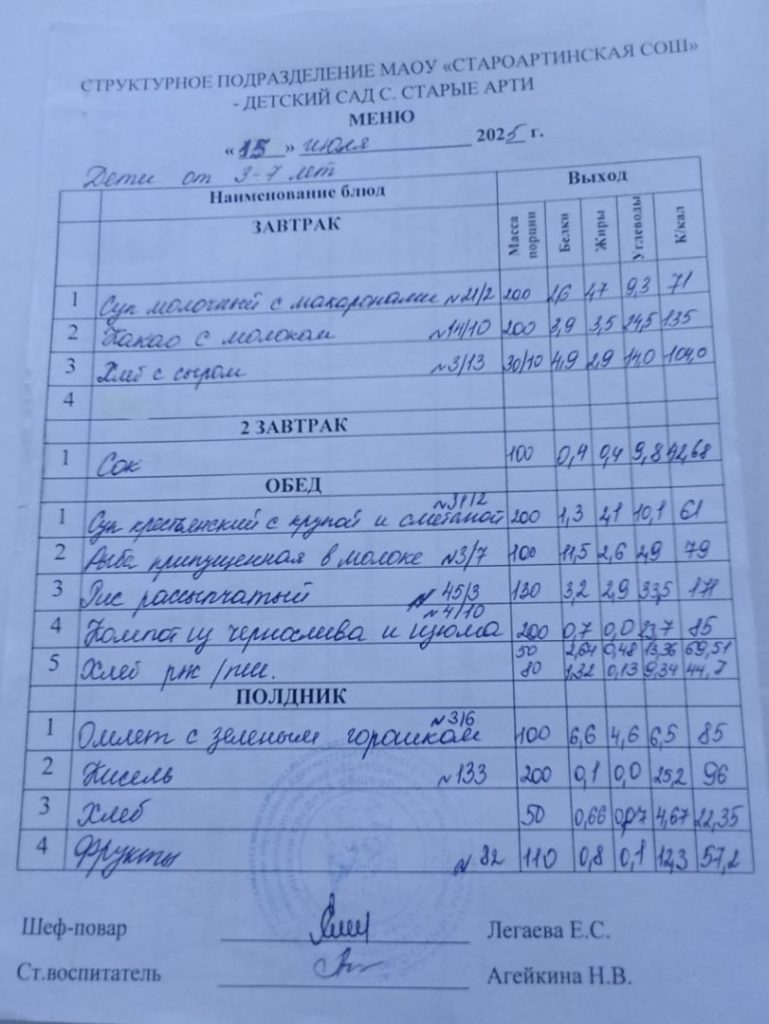 СТРУКТУРНОЕ ПОДРАЗДЕЛЕНИЕ МАОУ «СТАРОАРТИНСКАЯ СОШ»
- ДЕТСКИЙ САД С. СТАРЫЕ АРТИ
МЕНЮ
«15» июля 2025 г.
Дети от 3-7 лет
Наименование блюд Выход
ЗАВТРАК Масса порции Белки Жиры Углеводы К/кал
1 Суп молочный с макаронами №21/2 200 2,6 4,7 9,3 71
2 Какао с молоком №14/10 200 3,9 3,5 24,5 135
3 Хлеб с сыром №3/13 30/10 4,9 2,9 14,0 104,0
4
2 ЗАВТРАК
1 Сок 100 0,4 0,4 9,8 42,68
ОБЕД
1 Суп крестьянский с крупой и сметаной №31/2 200 1,3 2,1 10,1 61
2 Рыба припущенная в молоке №3/7 100 11,5 2,6 2,9 79
3 Рис рассыпчатый №45/3 130 3,2 2,9 33,5 171
4 Компот из чернослива и изюма №4/10 200 0,7 0,0 23,7 85
5 Хлеб рж/пш. 50 2,64 0,48 13,36 69,51
80 1,32 0,13 9,34 44,7
ПОЛДНИК
1 Омлет с зеленым горошком №3/6 100 6,6 4,6 6,5 85
2 Кисель №133 200 0,1 0,0 25,2 96
3 Хлеб 50 0,66 0,07 4,67 22,35
4 Фрукты №82 110 0,8 0,1 12,3 57,2
Шеф-повар Легаева Е.С.
Ст.воспитатель Агейкина Н.В.